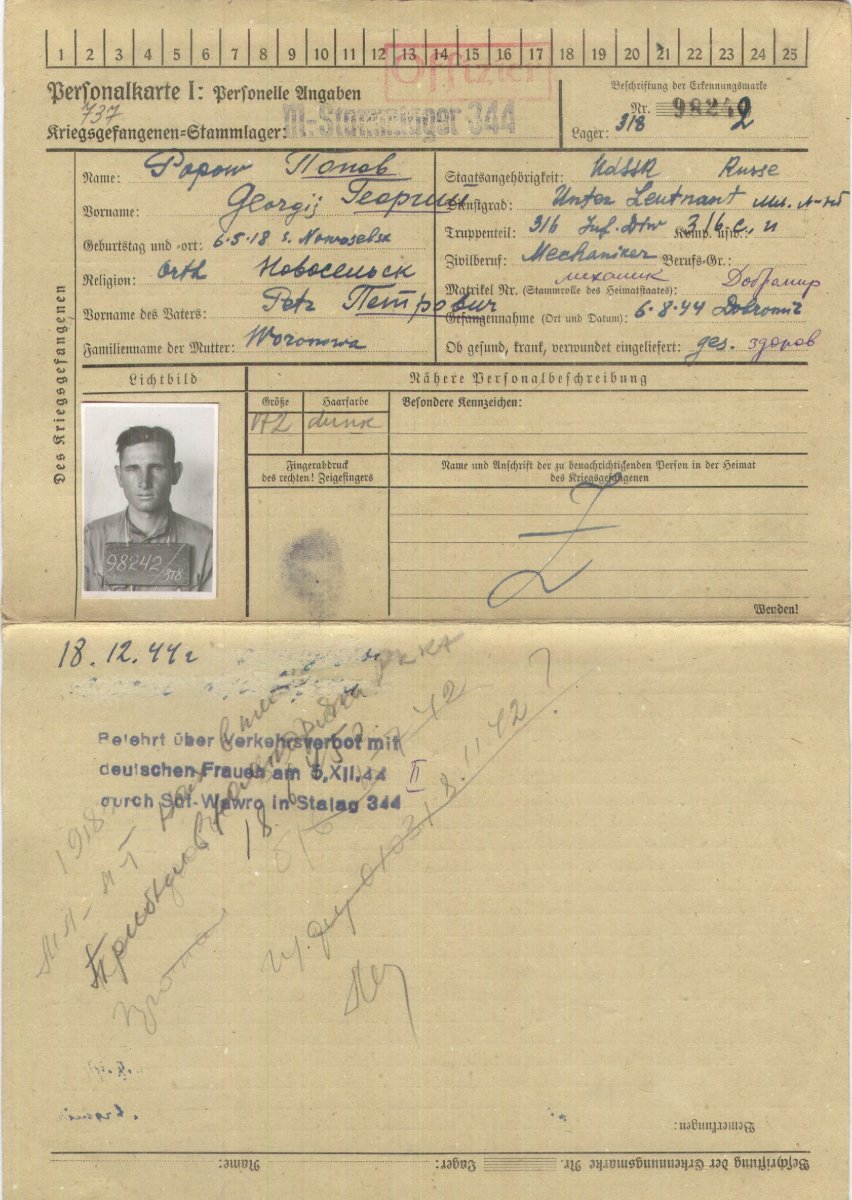 1 2 3 4 5 6 7 8 9 10 11 12 13 14 15 16 17 18 19 20 21 22 23 24 25
Offizier
Personalkarte I: Personelle Angaben
737
Kriegsgefangenen=Stammlager: M.-Stammlager 344
Beschriftung der Erkennungsmarke
Nr. 98242
Lager: 318
Des Kriegsgefangenen
Name: Popow Попов
Vorname: Georgij Георгий
Geburtstag und =ort: 6.5.18 s. Nowoselsk
Religion: Orth Новосельск
Vorname des Vaters: Petr Петрович
Familienname der Mutter: Woronowa
Staatsangehörigkeit: UdSSR Russe
Dienstgrad: Unter Leutnant мл. л-т
Truppenteil: 316 Inf. Div Komp. usw.: 316 с. п
Zivilberuf: Mechaniker Berufs=Gr.:
механик
Matrikel Nr. (Stammrolle des Heimatstaates): Добромир
Gefangennahme (Ort und Datum): 6.8.44 Dobromir
Ob gesund, krank, verwundet eingeliefert: ges. здоров
Lichtbild
Nähere Personalbeschreibung
Größe Haarfarbe Besondere Kennzeichen:
172 dunk
98242/318
Fingerabdruck
des rechten! Zeigefingers
Name und Anschrift der zu benachrichtigenden Person in der Heimat
des Kriegsgefangenen
Wenden!
18.12.44 г
Belehrt über Verkehrsverbot mit
deutschen Frauen am 5.XII.44 II
durch Sdf-Wawro in Stalag 344
1918
Мл-л-т
Bemerkungen:
Beschriftung der Erkennungsmarke Nr. Lager: Name: